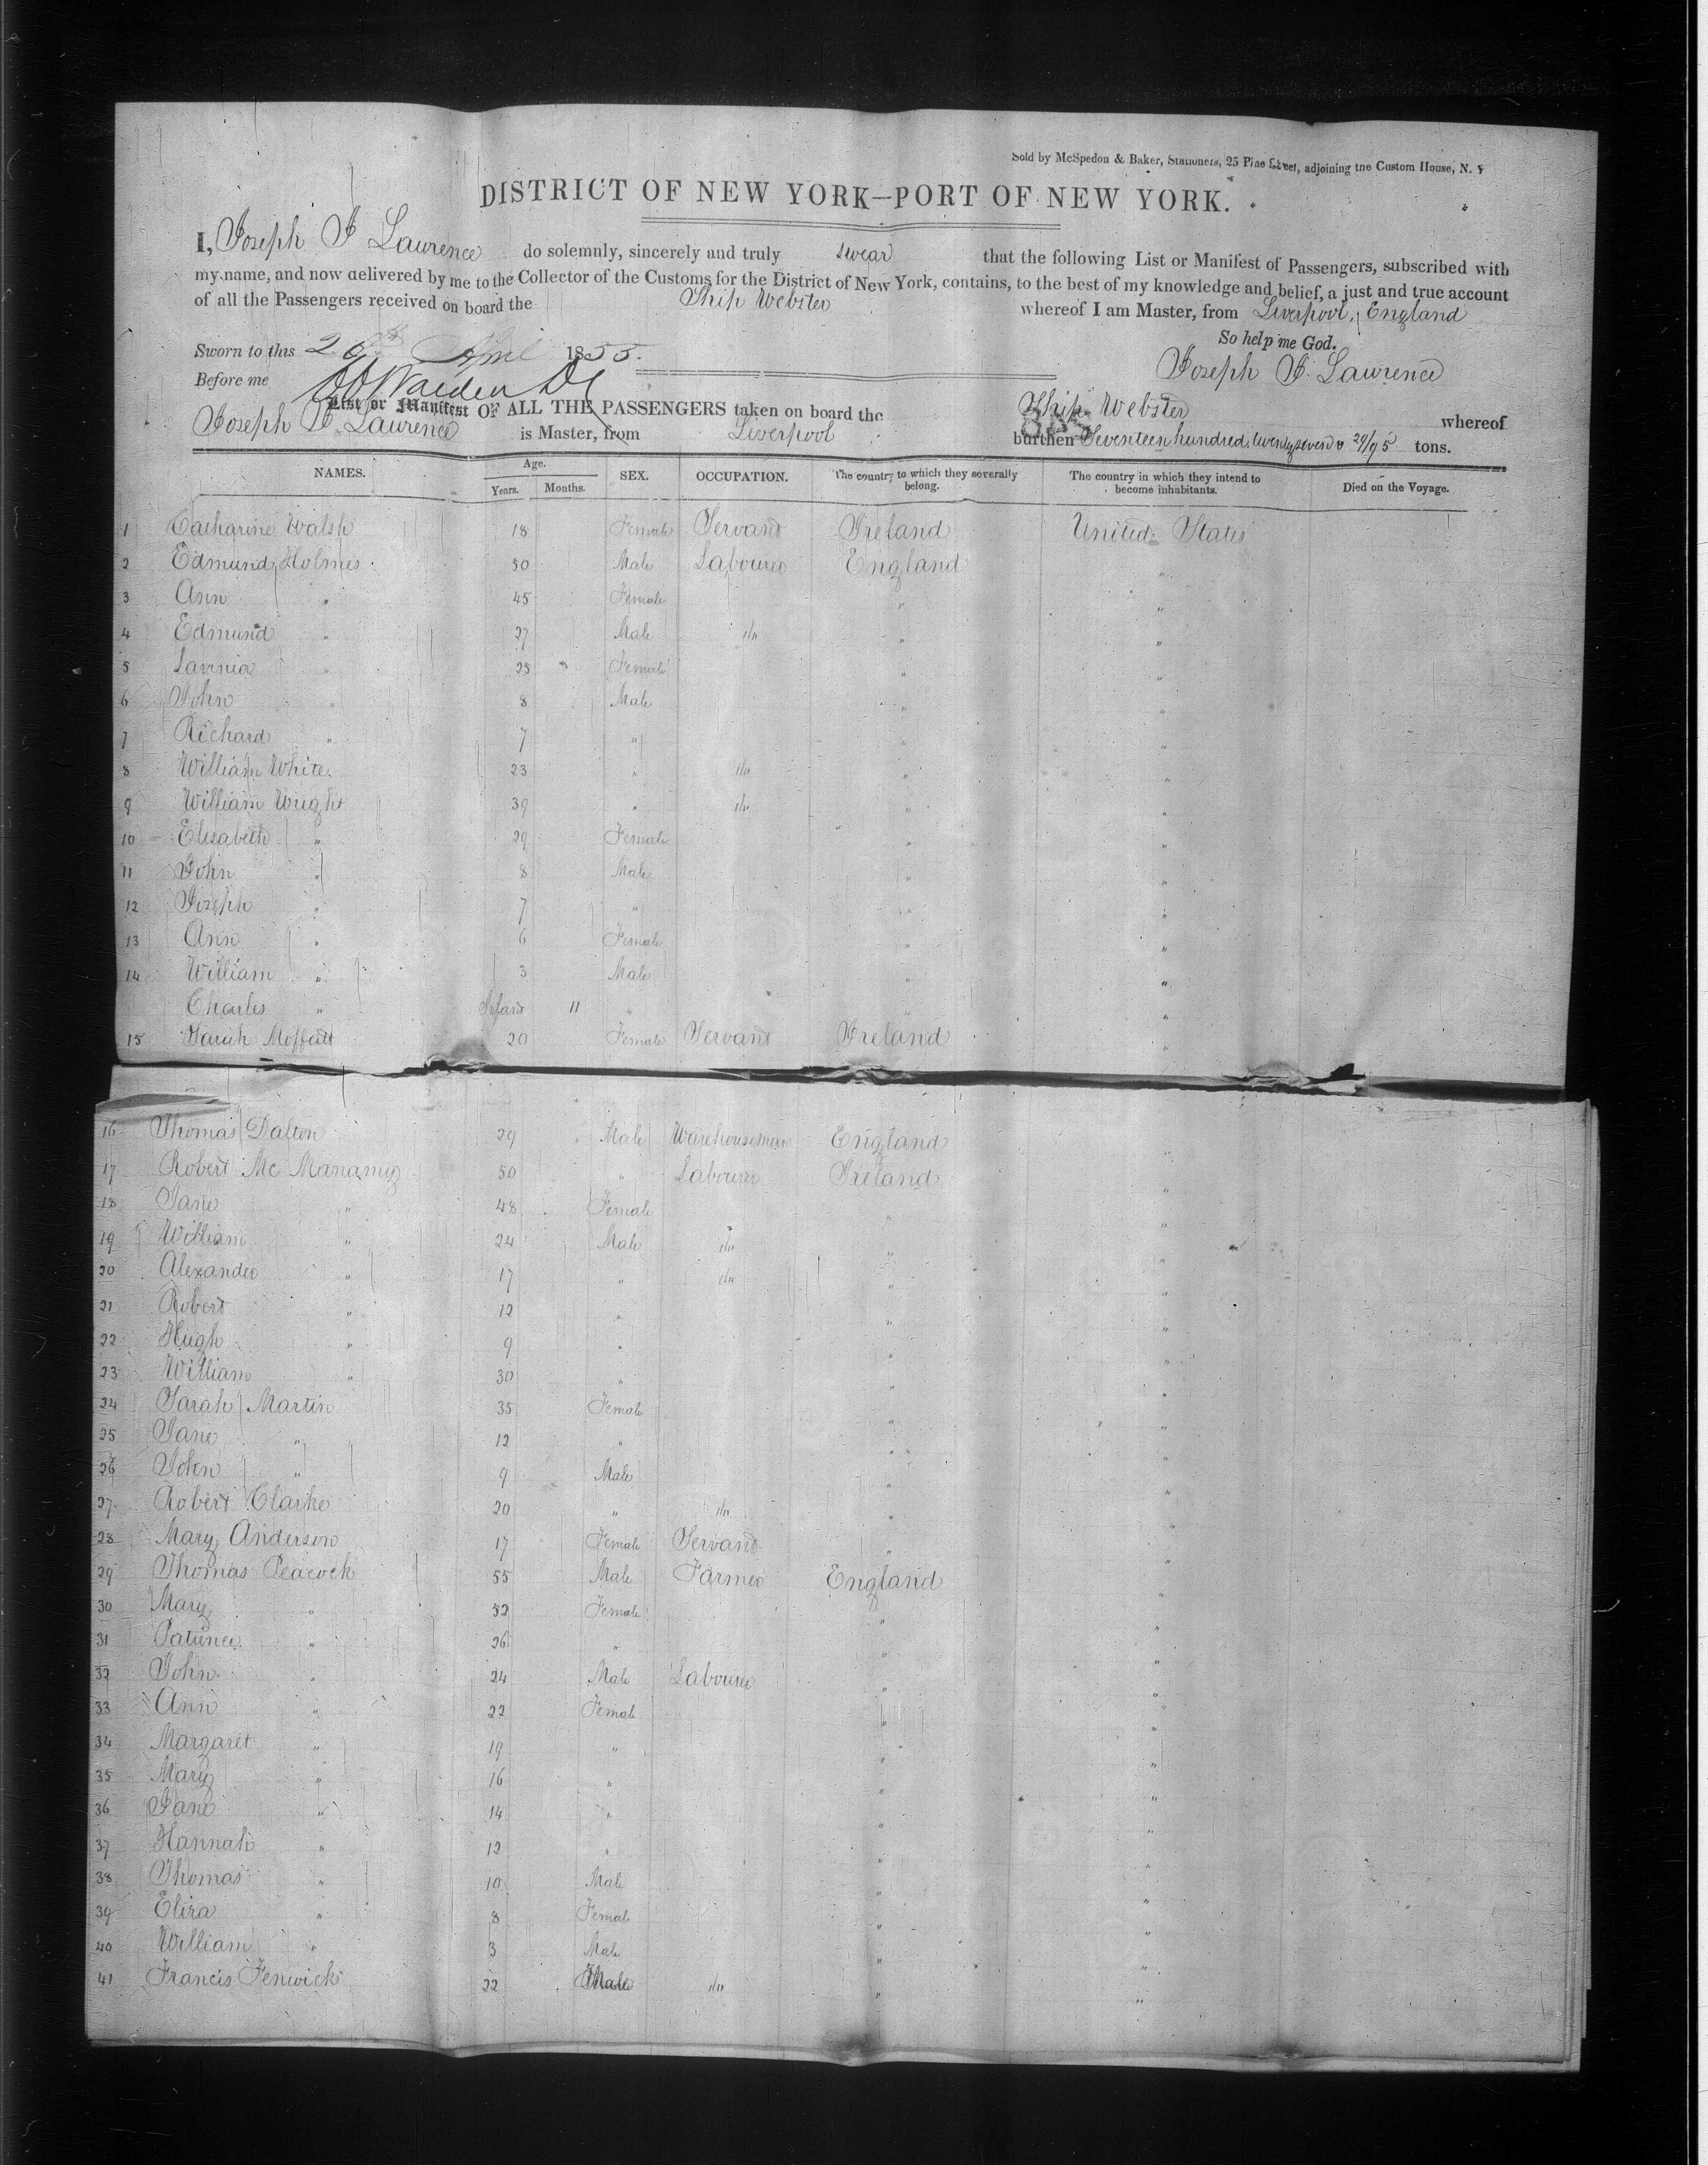 Sold by McSpedon & Baker, Stationers, 25 Pine Street, adjoining the Custom House, N. Y
DISTRICT OF NEW YORK—PORT OF NEW YORK.
I, Joseph J Lawrence do solemnly, sincerely and truly swear that the following List or Manifest of Passengers, subscribed with
my name, and now delivered by me to the Collector of the Customs for the District of New York, contains, to the best of my knowledge and belief, a just and true account
of all the Passengers received on board the Ship Webster whereof I am Master, from Liverpool, England
So help me God.
Sworn to this April 1855.
Joseph J. Lawrence
Before me
List or Manifest OF ALL THE PASSENGERS taken on board the Ship Webster whereof
Joseph J. Lawrence is Master, from Liverpool burthen Seventeen hundred twenty seven & 29/95 tons.
NAMES. Age. SEX. OCCUPATION. The country to which they severally belong. The country in which they intend to become inhabitants. Died on the Voyage.
Years. Months.
1 Catharine Walsh 18 Female Servant Ireland United States
2 Edmund Holmes 50 Male Labourer England "
3 Ann " 45 Female " "
4 Edmund " 27 Male do " "
5 Lavinia " 25 Female " "
6 John " 8 Male " "
7 Richard " 7 " " "
8 William White 23 " do " "
9 William Wright 39 " do " "
10 Elizabeth " 29 Female " "
11 John " 8 Male " "
12 Joseph " 7 " " "
13 Ann " 6 Female " "
14 William " 3 Male " "
Charles " Infant 11 " " "
15 Sarah Moffatt 20 Female Servant Ireland "
16 Thomas Dalton 29 Male Warehouseman England "
17 Robert Mc Manamy 50 " Labourer Ireland "
18 Jane " 48 Female " "
19 William " 24 Male do " "
20 Alexander " 17 " do " "
21 Robert " 12 " " "
22 Hugh " 9 " " "
23 William " 30 " " "
24 Sarah Martin 35 Female " "
25 Jane " 12 " " "
26 John " 9 Male " "
27 Robert Clarke 20 " do " "
28 Mary Anderson 17 Female Servant " "
29 Thomas Peacock 55 Male Farmer England "
30 Mary " 52 Female " "
31 " 26 " " "
32 John " 24 Male Labourer " "
33 Ann " 22 Female " "
34 Margaret " 19 " " "
35 Mary " 16 " " "
36 Jane " 14 " " "
37 Hannah " 12 " " "
38 Thomas " 10 Male " "
39 Eliza " 8 Female " "
40 William " 3 Male " "
41 Francis Fenwick 22 Male do " "